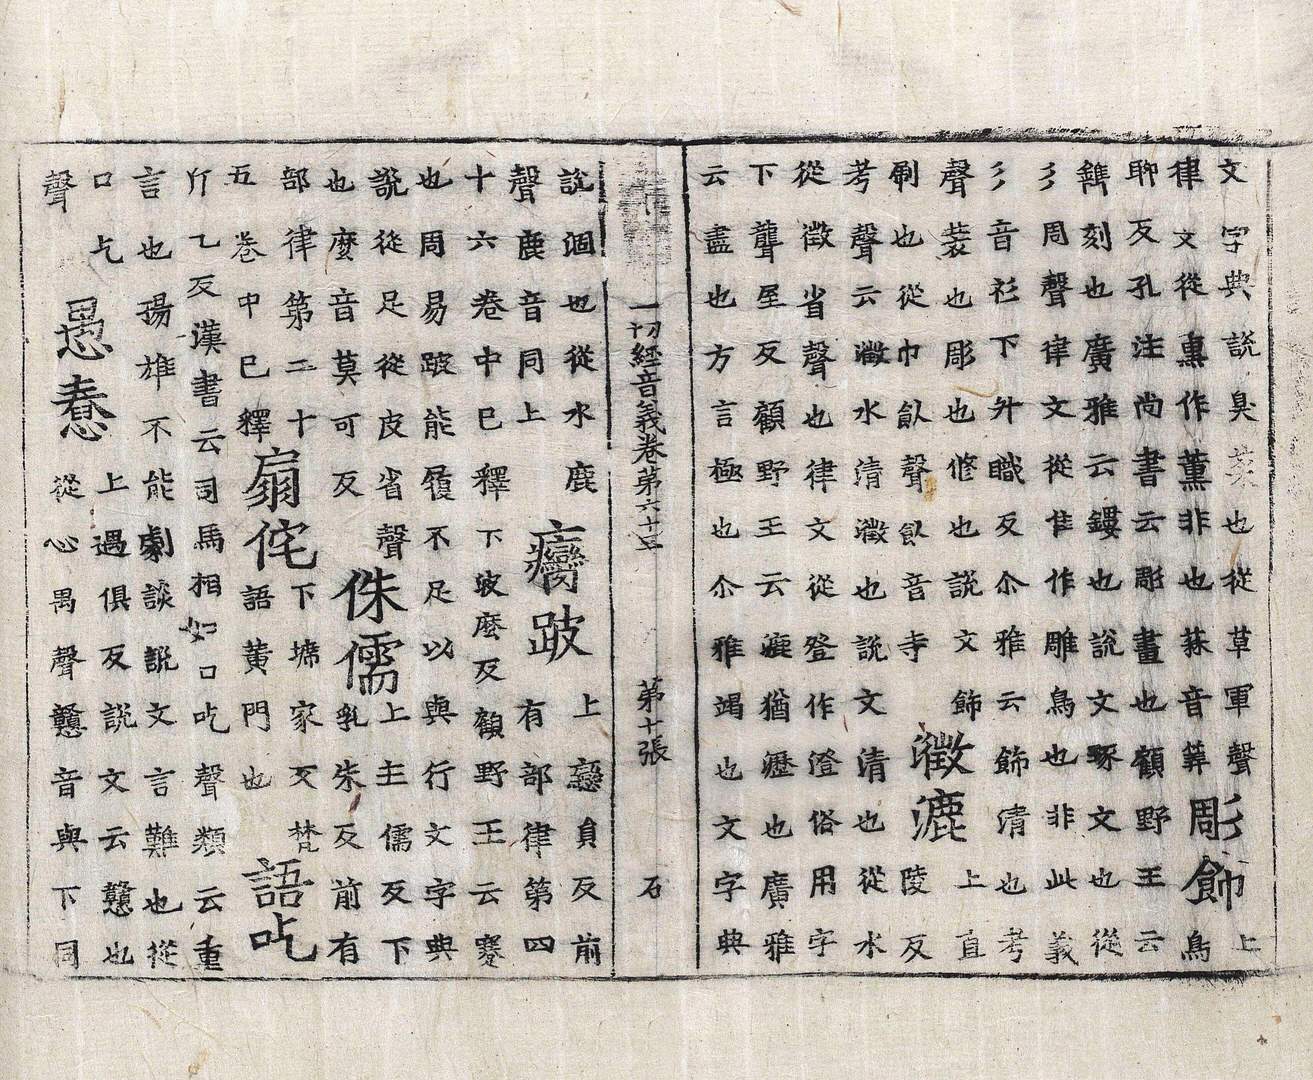 文字典說臭菜也從草軍聲
律文從熏作薰非也蒣音葬
彫飾
上
鳥
聊反孔注尚書云彫畫也顧野王云
鐫刻也廣雅云鏤也說文琢文也從
彡周聲律文從隹作雕鳥也非此義
彡音衫下升職反尒雅云飾清也考
聲裝也彫也修也說文飾
㕞也從巾飤聲飤音寺
澂漉
上直
陵反
考聲云澂水清澂也說文清也從水
從徵省聲也律文從登作澄俗用字
下聾屋反顧野王云漉猶瀝也廣雅
云盡也方言極也尒雅竭也文字典
一切經音義卷第六十五 第十張 石
說涸也從水鹿
聲鹿音同上
癵跛
上戀員反前
有部律第四
十六卷中已釋下跛麼反顧野王云蹇
也周易跛能履不足以與行文字典
說從足從皮省聲
也麼音莫可反
侏儒
上主儒反下
乳朱反前有
部律第二十
五卷中已釋
扇侘
下㙤家反梵
語黃門也
語吃
斤乙反漢書云司馬相如口吃聲類云重
言也揚雄不能劇談說文言難也從
口气
聲
愚惷
上遇俱反說文云戇也
從心禺聲戇音與下同